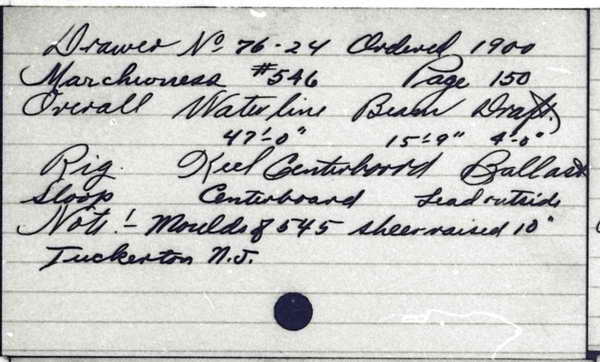 Drawer No 76-24 Ordered 1900
Marchioness #546 Page 150
Overall Waterline Beam Draft
47'-0" 15'-9" 4'-0"
Rig. Keel Centerboord Ballast
Sloop Centerboard Lead outside
Note!- Moulds of 545 sheer raised 10"
Tuckerton N.J.